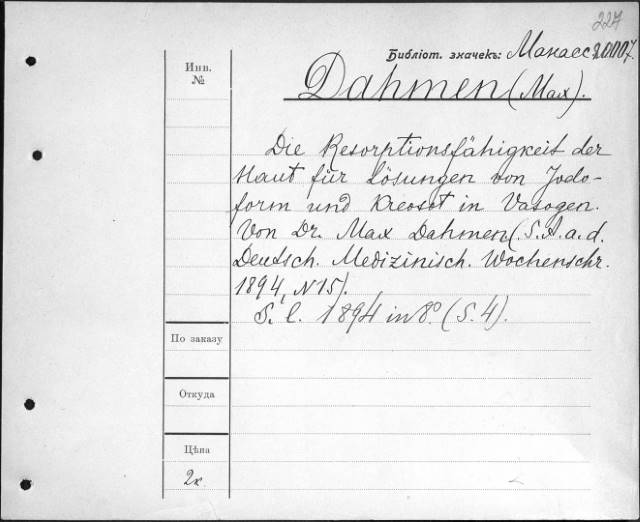 227
Библіот. значекъ: Манасс 20007.
Инв.
№
Dahmen (Max).
Die Resorptionsfähigkeit der
Haut für Lösungen von Jodo-
form und Kreosot in Vasogen.
Von Dr. Max Dahmen (S. A. a. d.
Deutsch. Medizinisch. Wochenschr.
1894, N 15).
S. l. 1894 in 8º. (S. 4).
По заказу
Откуда
Цѣна
2к.